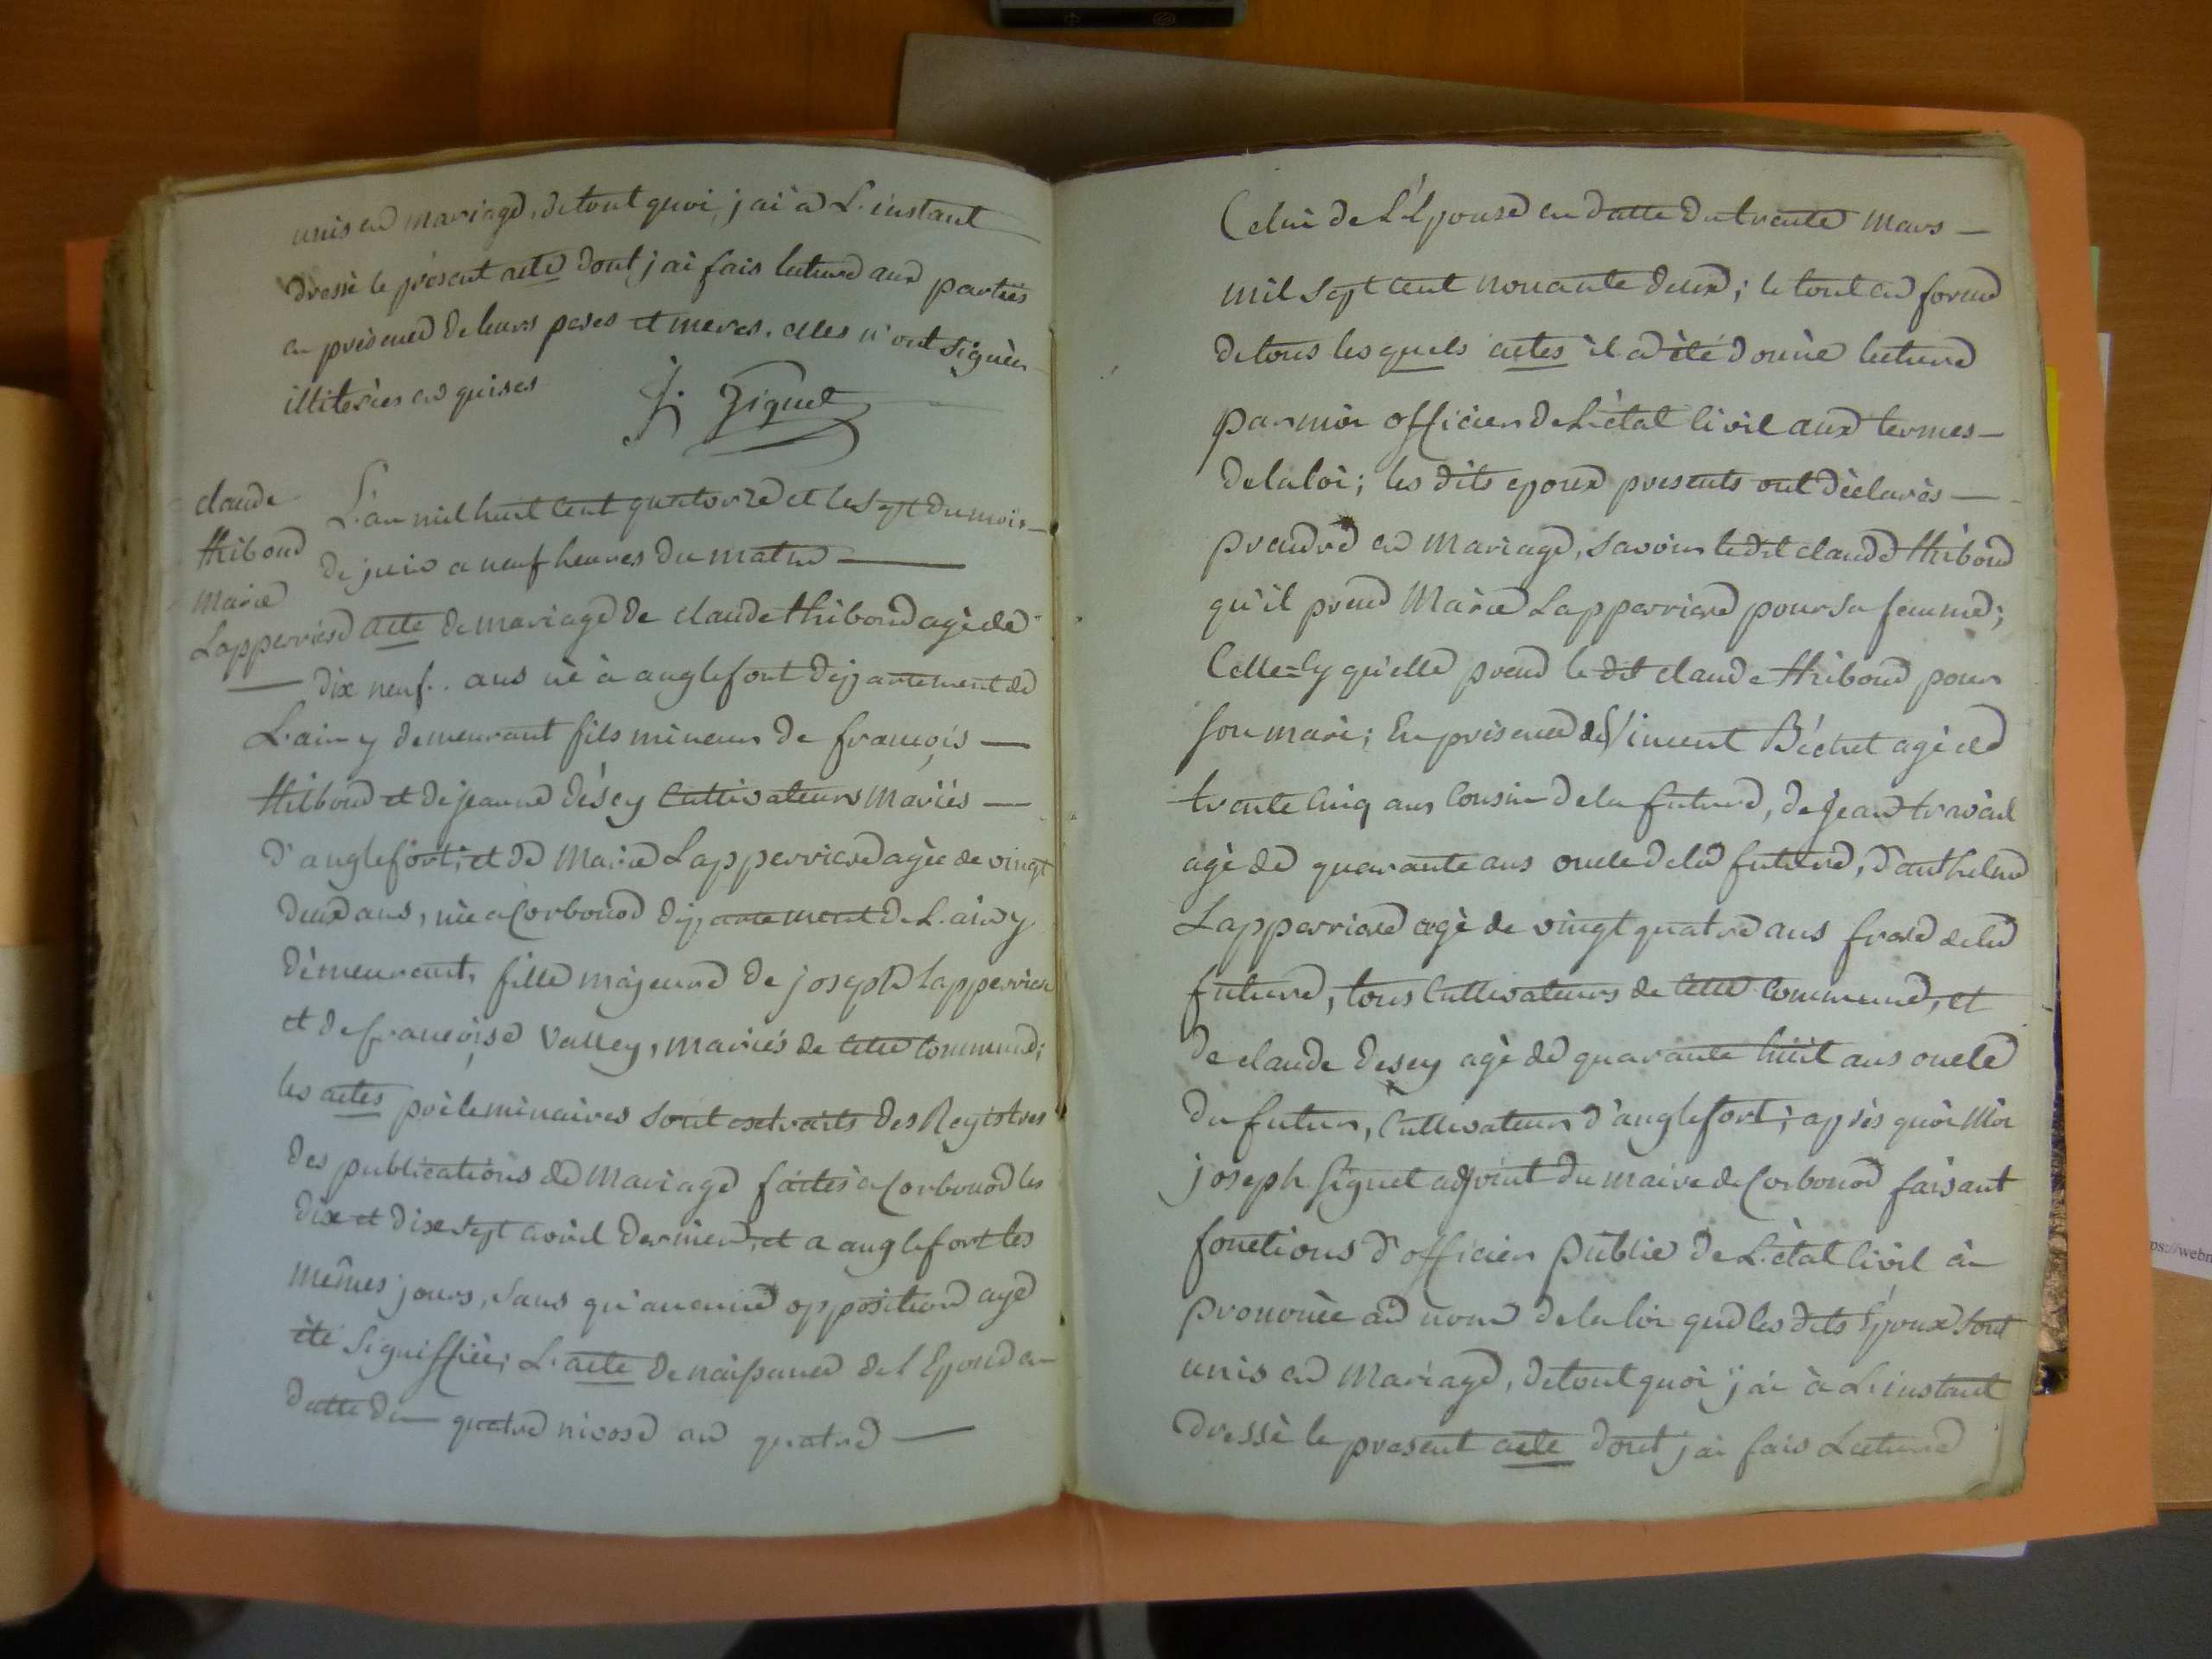 unis en mariage, de tout quoi j'ai à L'instant
dressé le présent acte dont j'ai fais lecture aux parties
en présence de leurs peres et meres. elles n'ont signèes
illiterèes en quises
J. Ziguet
claude
thiboud
Marie
Lapperriere
L'an mil huit cent quatorze et le sept du mois
de juin a neuf heures du matin
acte de mariage de claude thiboud agè de
dix neuf .. ans né à anglefort département de
L'ain y demeurant fils mineur de françois
thiboud et de jeanne désey Cultivateurs mariés
d'anglefort; et de Marie Lapperriere agèe de vingt
deux ans, nèe a Corbonod département de L'ain y
démeurant, fille majeure de joseph Lapperriere
et de françoise Valley, mariés de cette Commune;
les actes prèleminaires sont extraits des Registres
des publications de Mariage faites à Corbonod les
dix et dix sept avril dernier, et a anglefort les
mêmes jours, sans qu'aucune opposition aye
étè signiffièe; L'acte de naissance de l'Epoux en
datte du quatre nivose an quatre
Celui de L'Épouse en datte du trente Mars
mil sept cent nonante deux; le tout en forme
de tous les quels actes il a été donnè lecture
par moi officier de L'état Civil aux termes
de la loi; les dits epoux presents ont dèclarès
prendre en Mariage, savoir le dit claude thiboud
qu'il prend Marie Lapperriere pour sa femme;
Celle=Cy qu'elle prend le dit claude thiboud pour
son mari; En présence de Vincent Béchet agè de
trente Cinq ans Cousin de la future, de Jean travail
agè de quarante ans oncle de la future, d'anthelme
Lapperriere agè de vingt quatre ans frere de la
future, tous Cultivateurs de cette Commune, et
de claude desey agè de quarante huit ans oncle
du futur, Cultivateur d'anglefort; après quoi Moi
joseph Ziguet adjoint du maire de Corbonod faisant
fonctions d'officier Public de L'ètat Civil ai
prononcè au nom de la loi que les dits Époux sont
unis en Mariage, de tout quoi j'ai à L'instant
dressé le present acte dont j'ai fais Lecture